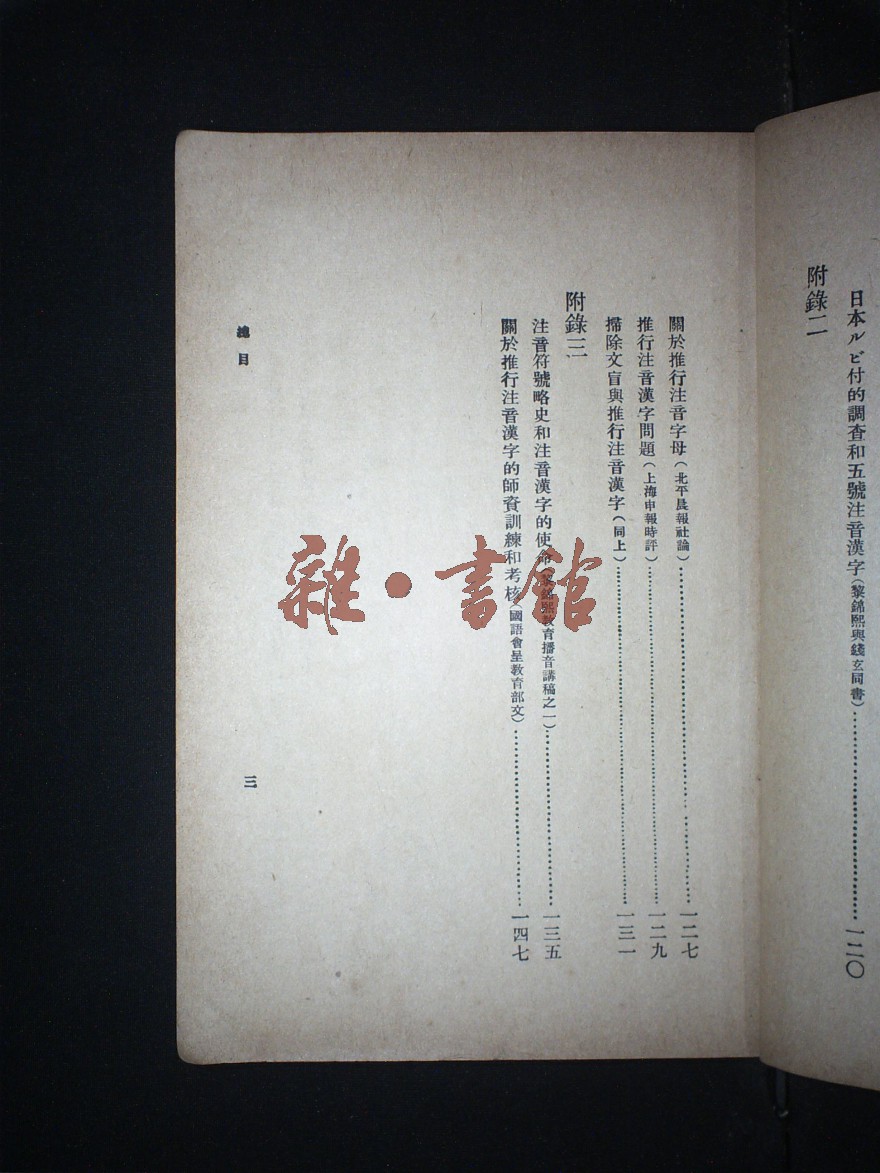 日本ルビ付的調查和五號注音漢字(黎錦熙與錢玄同書)……一二〇
附錄二
關於推行注音字母(北平晨報社論)……一二七
推行注音漢字問題(上海申報時評)……一二九
掃除文盲與推行注音漢字(同上)……一三一
附錄三
注音符號略史和注音漢字的使命(黎錦熙教育播音講稿之一)……一三五
關於推行注音漢字的師資訓練和考核(國語會呈教育部文)……一四七
總目
三
雜·書館